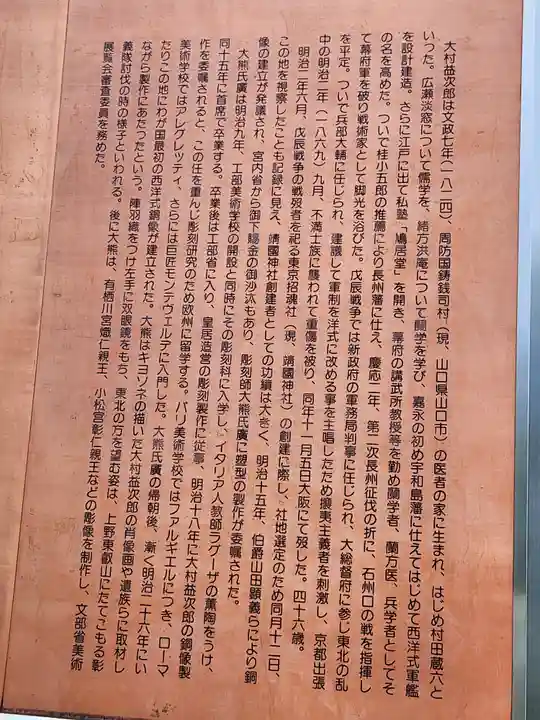 大村益次郎は文政七年(一八二四)、周防国鋳銭司村(現、山口県山口市)の医者の家に生まれ、はじめ村田蔵六と
いった。広瀬淡窓について儒学を、緒方洪庵について蘭学を学び、嘉永の初め宇和島藩に仕えてはじめて西洋式軍艦
を設計建造。さらに江戸に出て私塾「鳩居堂」を開き、幕府の講武所教授等を勤め蘭学者、蘭方医、兵学者としてそ
の名を高めた。ついで桂小五郎の推薦により長州藩に仕え、慶応二年、第二次長州征伐の折に、石州口の戦を指揮し
て幕府軍を破り戦術家として脚光を浴びた。戊辰戦争では新政府の軍務局判事に任じられ、大総督府に参じ東北の乱
を平定。ついで兵部大輔に任じられ、建議して軍制を洋式に改める事を主唱したため攘夷主義者を刺激し、京都出張
中の明治二年(一八六九)九月、不満士族に襲われて重傷を被り、同年十一月五日大阪にて歿した。四十六歳。
明治二年六月、戊辰戦争の戦歿者を祀る東京招魂社(現、靖國神社)の創建に際し、社地選定のため同月十二日、
この地を視察したことも記録に見え、靖國神社創建者としての功績は大きく、明治十五年、伯爵山田顕義らにより銅
像の建立が発議され、宮内省から御下賜金の御沙汰もあり、彫刻師大熊氏廣に塑型の製作が委嘱された。
大熊氏廣は明治九年、工部美術学校の開設と同時にその彫刻科に入学し、イタリア人教師ラグーザの薫陶をうけ、
同十五年に首席で卒業する。卒業後は工部省に入り、皇居造営の彫刻製作に従事、明治十八年に大村益次郎の銅像製
作を委嘱されると、この任を重んじ彫刻研究のため欧州に留学する。パリ美術学校ではファルギエルにつき、ローマ
美術学校ではアレグレッティ、さらには巨匠モンテヴェルデに入門した。大熊氏廣の帰朝後、漸く明治二十六年にい
たりこの地にわが国最初の西洋式銅像が建立された。大熊はキヨソネの描いた大村益次郎の肖像画や遺族らに取材し
ながら製作にあたったという。陣羽織をつけ左手に双眼鏡をもち、東北の方を望む姿は、上野東叡山にたてこもる彰
義隊討伐の時の様子といわれる。後に大熊は、有栖川宮熾仁親王、小松宮彰仁親王などの彫像を制作し、文部省美術
展覧会審査委員を務めた。